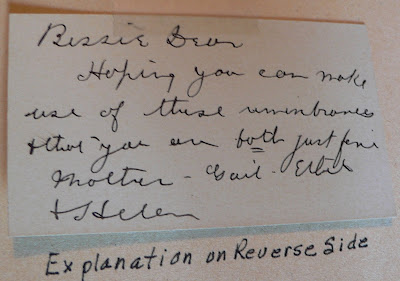 Bessie Dear
Hoping you can make
use of these remembrances
& that you are both just fine
Mother - Gail - Ethel
& Helen
Explanation on Reverse Side